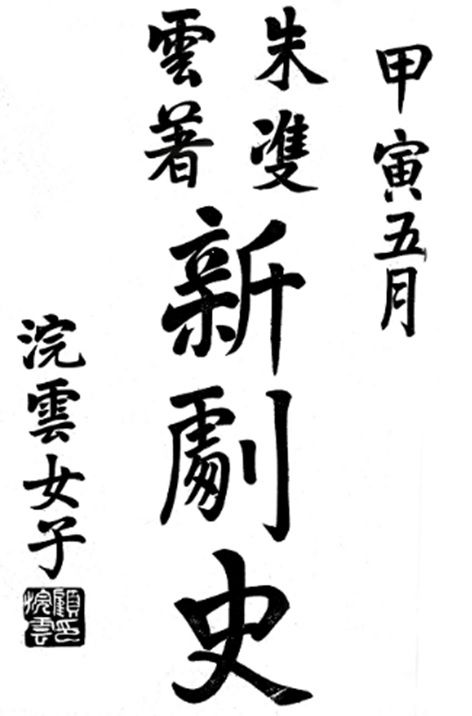 甲寅五月
朱雙
雲著
新劇史
浣雲女子
顧印
浣雲